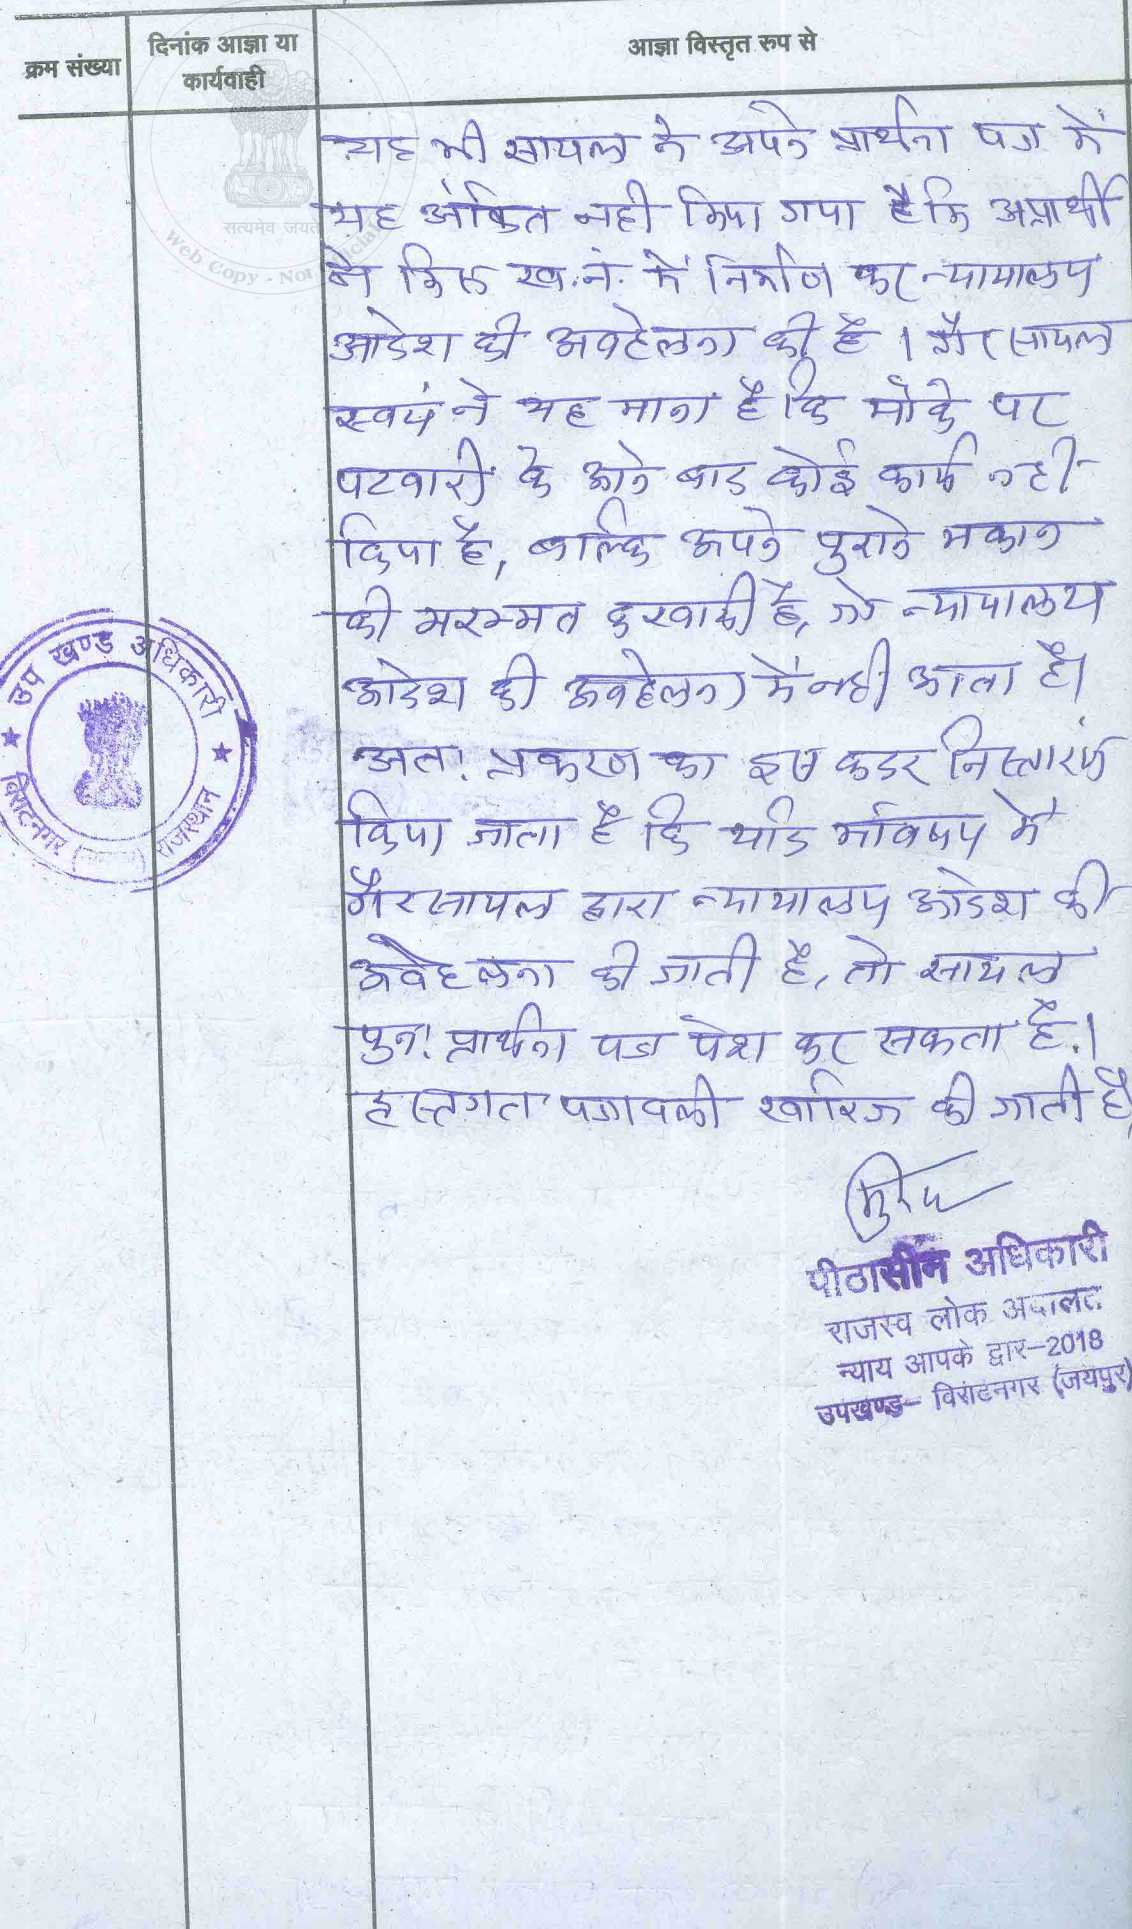 क्रम संख्या
दिनांक आज्ञा या
कार्यवाही
आज्ञा विस्तृत रुप से
सत्यमेव जयते
Web Copy - Not Official
यह भी सायल ने अपने प्रार्थना पत्र में
यह अंकित नही किया गया है कि अप्रार्थी
ने किस ख.नं. में निर्माण कर न्यायालय
आदेश की अवहेलना की है । गैर सायल
स्वयं ने यह माना है कि मौके पर
पटवारी के आने बाद कोई कार्य नही
किया है, बल्कि अपने पुराने मकान
की मरम्मत करवायी है, जो न्यायालय
आदेश की अवहेलना में नही आता है।
अतः प्रकरण का इस कदर निस्तारण
किया जाता है कि यदि भविष्य में
गैरसायल द्वारा न्यायालय आदेश की
अवेहलना की जाती है, तो सायल
पुनः प्रार्थना पत्र पेश कर सकता है।
हस्तगत पत्रावली खारिज की जाती है
उप खण्ड अधिकारी
विराटनगर राजस्थान
पीठासीन अधिकारी
राजस्व लोक अदालत
न्याय आपके द्वार-2018
उपखण्ड- विराटनगर (जयपुर)